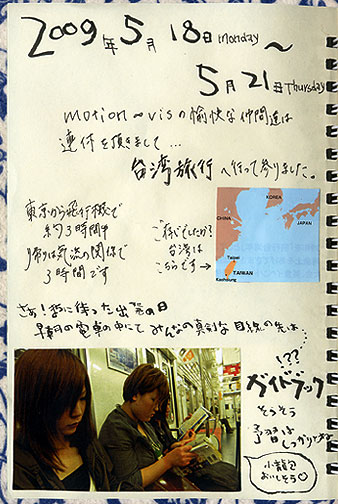 2009年5月18日monday
〜
5月21日Thursday
motion〜visの愉快な仲間達は
連休を頂きまして...
台湾旅行へ行って参りました。
東京から飛行機で
約3時間半
帰りは気流の関係で
3時間です
ご存じでしたか?
台湾は
こちらです→
KOREA
CHINA
JAPAN
Taipei
TAIWAN
Kaohsiung
さぁ!待ちに待った出発の日
早朝の電車の中にて みんなの真剣な目線の先は...
!??
ガイドブック
そろそろ
予習は
しっかりとね
小籠包
おいしそう♡